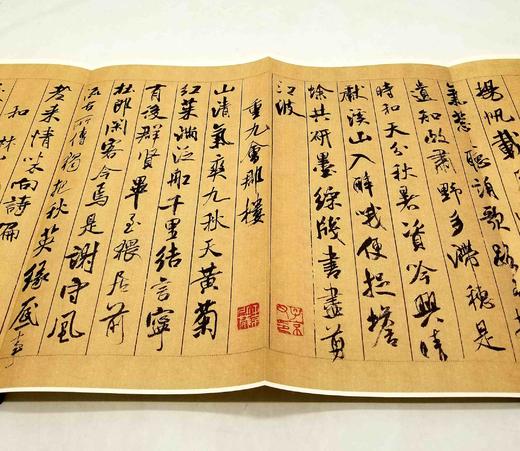 揚帆載
氣葱〻聽誦歌路
遺知政肅野多滯穗是
時和天分秋暑資吟興晴
獻溪山入醉哦便捉蟾
蜍共研墨綵牋書盡剪
江波
重九會郡樓
山清氣爽九秋天黄菊
紅茱滿泛舩千里結言寧
有後群賢畢至猥居前
杜郎閑客今焉是謝守風
流古所傳獨把秋英緣底事
老來情味向詩偏
和林